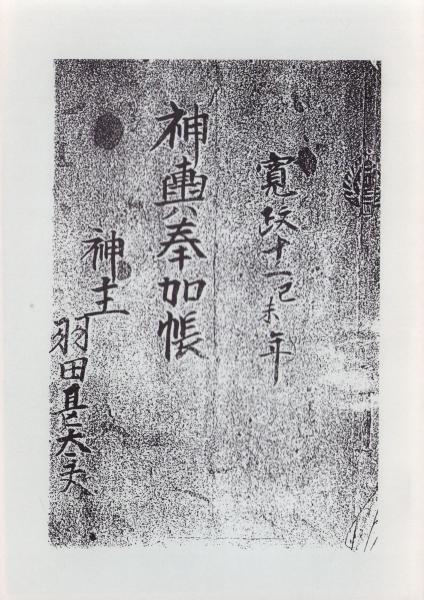 寛政十一己未年
神輿奉加帳
神主
羽田甚太夫